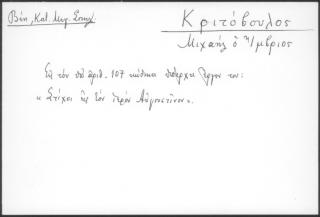 Βλπ. Κατ. Μεγ. Σπηλ.
Κριτόβουλος
Μιχαὴλ ὁ Ἠμβριος
Εἰς τὸν ὑπ' ἀριθ. 107 κώδικα ὑπάρχει ἔργον του:
« Στίχοι εἰς τὸν ἱερὸν Αὐγουστῖνον».